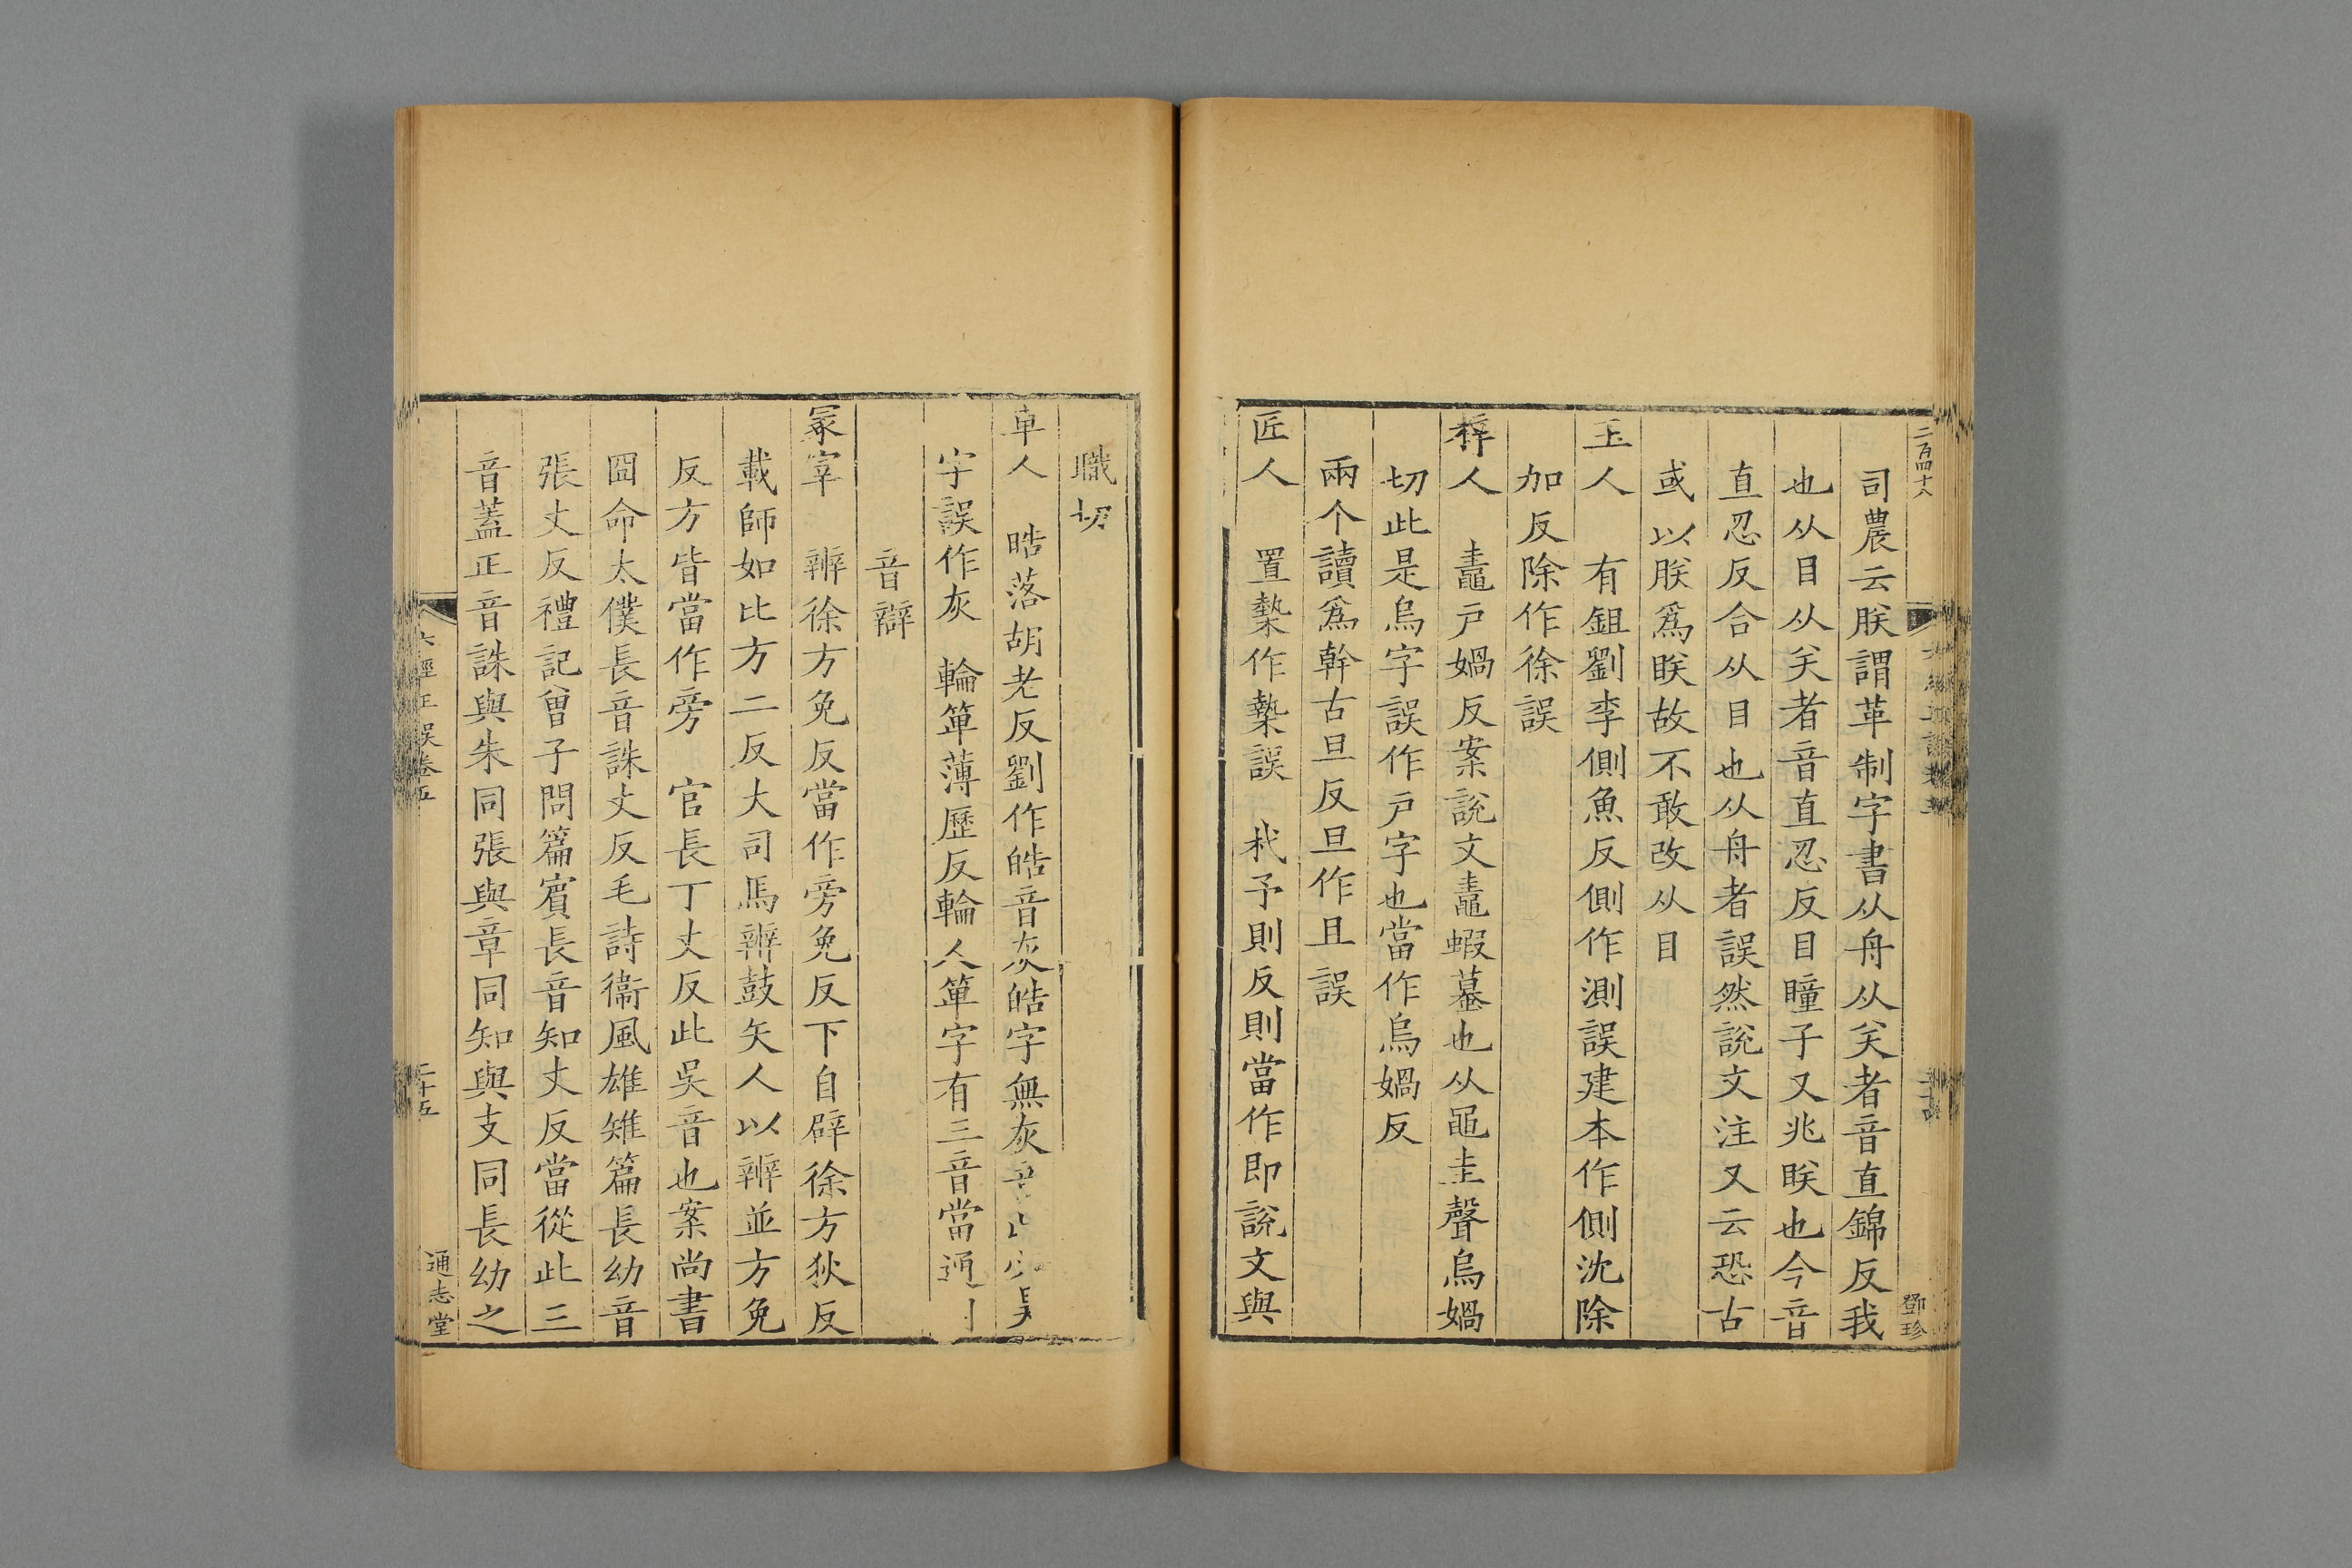 二百四十八
鄧珍
司農云朕謂革制字書从舟从关者音直錦反我
也从目从关者音直忍反目瞳子又兆眹也今音
直忍反合从目也从舟者誤然說文注又云恐古
或以朕爲眹故不敢改从目
玉人　有鉏劉李側魚反側作測誤建本作側沈除
加反除作徐誤
梓人　鼃戸媧反案說文鼃蝦蟇也从黽圭聲烏媧
切此是烏字誤作戸字也當作烏媧反
兩个讀爲幹古旦反旦作且誤
匠人　置槷作槷誤　杙予則反則當作即說文與
職切
車人　晧落胡老反劉作皓音灰皓字無灰
字誤作灰　輪箄薄歷反輪人箄字有三音當通
音辯
冢宰　辨徐方免反當作旁免反下自辟徐方狄反
載師如比方二反大司馬辨鼓矢人以辨並方免
反方皆當作旁　官長丁丈反此吳音也案尚書
冏命太僕長音誅丈反毛詩衞風雄雉篇長幼音
張丈反禮記曾子問篇賓長音知丈反當從此三
音蓋正音誅與朱同張與章同知與支同長幼之
六經正誤卷五
二十五
通志堂